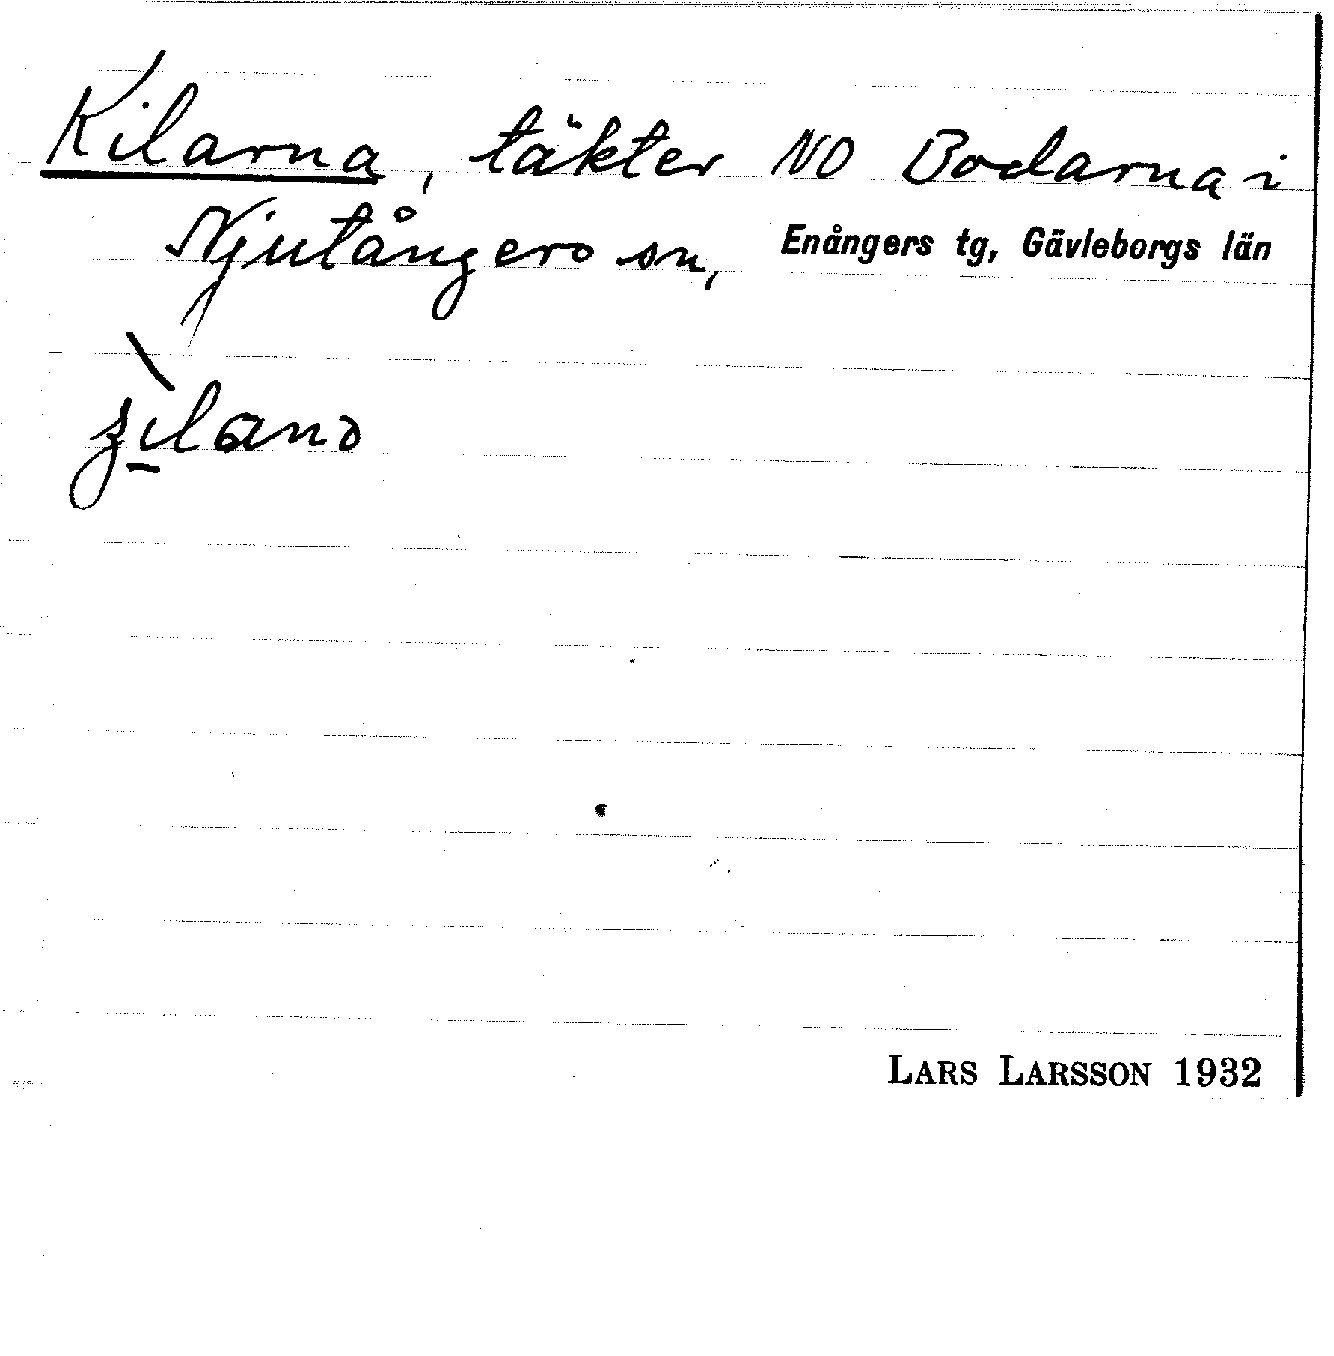 Kilarna, täkter NO Bodarna i
Njutångers sn, Enångers tg, Gävleborgs län
LARS LARSSON 1932